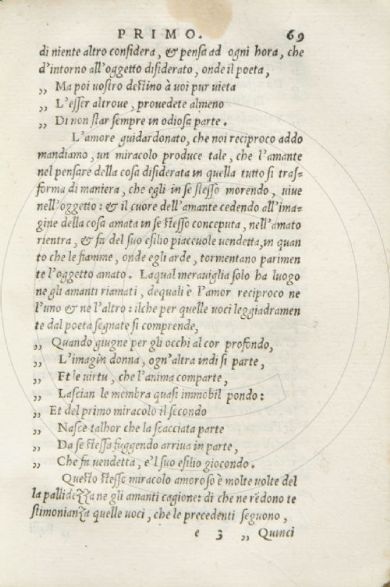 PRIMO. 69
di niente altro considera, & pensa ad ogni hora, che
d'intorno all'oggetto disiderato, onde il poeta,
„ Ma poi uostro destino à uoi pur uieta
„ L'esser altroue, prouedete almeno
„ Di non star sempre in odiosa parte.
L'amore guidardonato, che noi reciproco addo
mandiamo, un miracolo produce tale, che l'amante
nel pensare della cosa disiderata in quella tutto si tras-
forma di maniera, che egli in se stesso morendo, uiue
nell'oggetto: & il cuore dell'amante cedendo all'ima-
gine della cosa amata in se stesso conceputa, nell'amato
rientra, & fa del suo esilio piaceuole uendetta, in quan
to che le fiamme, onde egli arde, tormentano parimen
te l'oggetto amato. Laqual merauiglia solo ha luogo
ne gli amanti riamati, de quali è l'amor reciproco ne
l'uno & ne l'altro: ilche per quelle uoci leggiadramen
te dal poeta segnate si comprende,
„ Quando giugne per gli occhi al cor profondo,
„ L'imagin donna, ogn'altra indi si parte,
„ Et le uirtu, che l'anima comparte,
„ Lascian le membra quasi immobil pondo:
„ Et del primo miracolo il secondo
„ Nasce talhor che la scacciata parte
„ Da se stessa fuggendo arriua in parte,
„ Che fa uendetta, e'l suo esilio giocondo.
Questo stesso miracolo amoroso è molte uolte del
la pallidezza ne gli amanti cagione: di che ne rēdono te
stimonianza quelle uoci, che le precedenti seguono,
e 3 „ Quinci